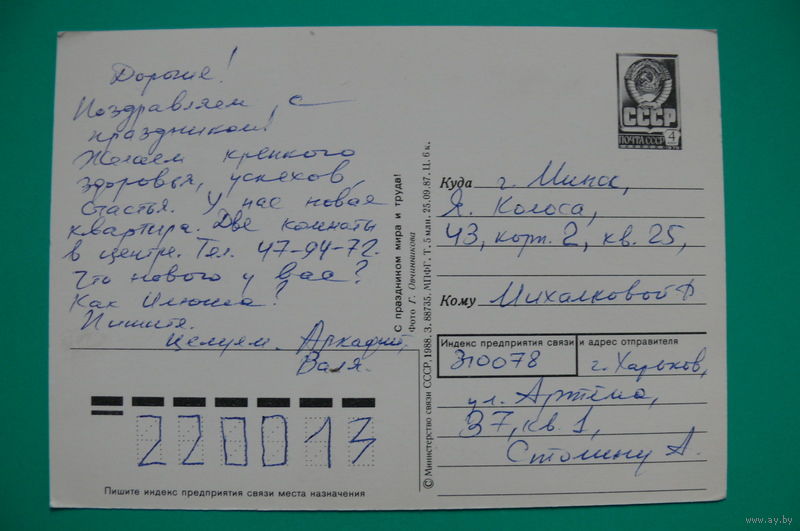 Дорогие!
Поздравляем с
праздником!
Желаем крепкого
здоровья, успехов,
счастья. У нас новая
квартира. Две комнаты
в центре. Тел. 47-94-72.
Что нового у вас?
Как Илюша?
Пишите.
Целуем. Аркадий,
Валя.
220013
Пишите индекс предприятия связи места назначения
С праздником мира и труда!
Фото Г. Овчинникова
© Министерство связи СССР, 1988. З. 88735. МПФГ. Т. 5 млн. 25.09.87. Ц. 6 к.
СССР
ПОЧТА СССР 4
Куда г. Минск,
Я. Колоса,
43, корп. 2, кв. 25,
Кому Михалковой Ф
Индекс предприятия связи и адрес отправителя
310078 г. Харьков,
ул. Артёма,
37, кв. 1,
Столину А.
www.ay.by